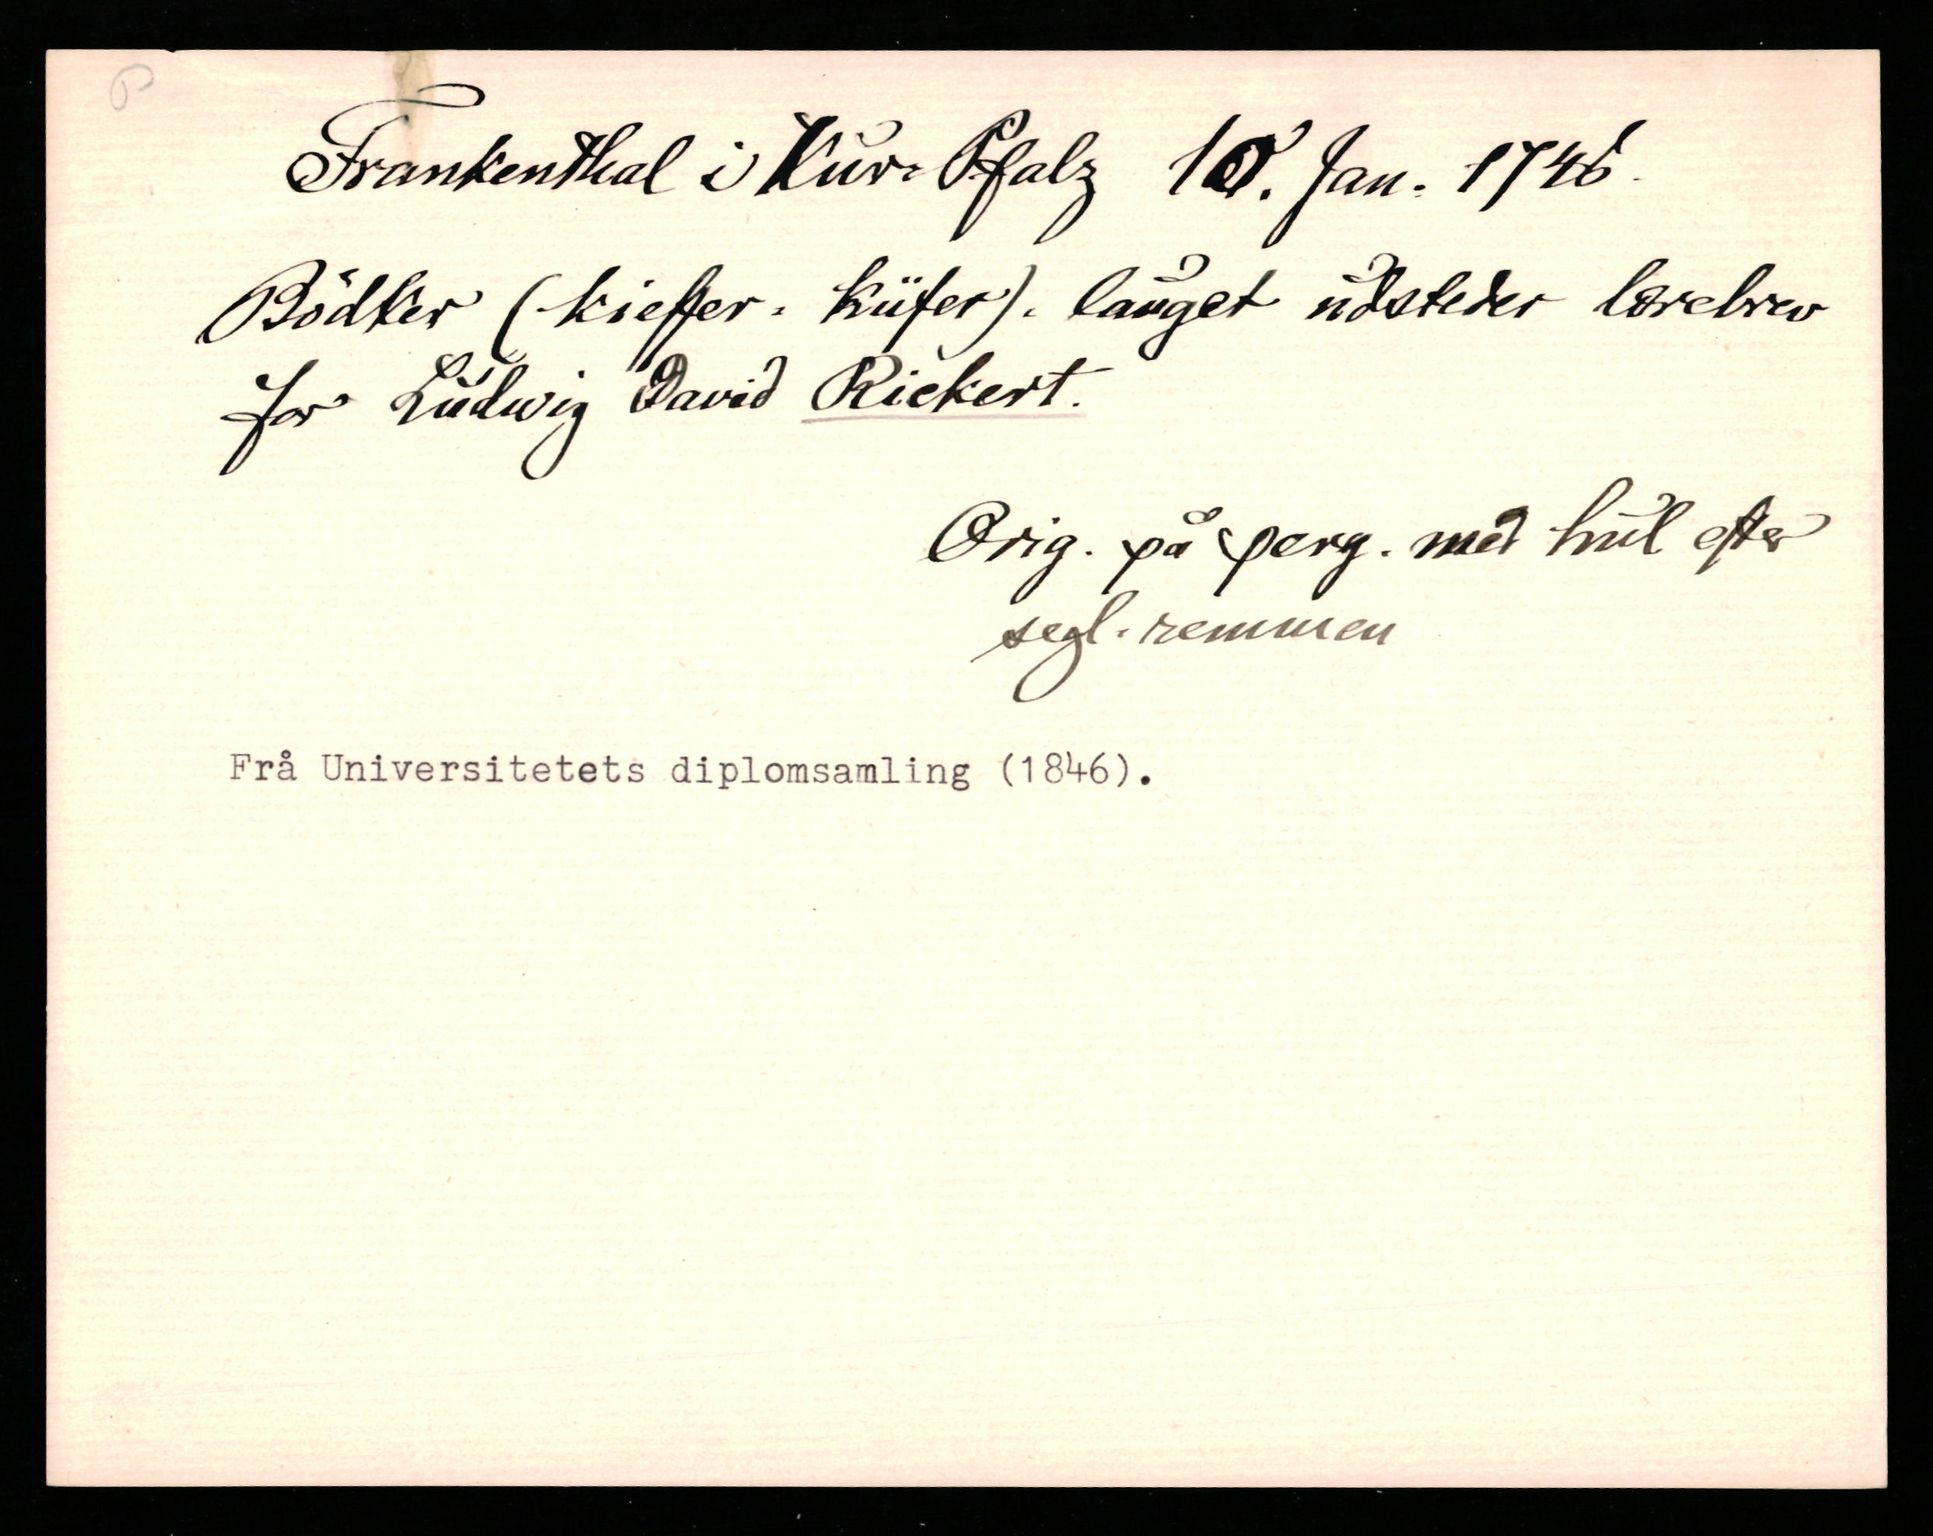 P
Frankenthal i Kur-Pfalz 10. Jan. 1746.
Bödker (kieffer- Küfer)- lauget udsteder lærebrev
for Ludwig David Rickert.
Orig. på perg. med hul efter
segl-remmen
Frå Universitetets diplomsamling (1846).